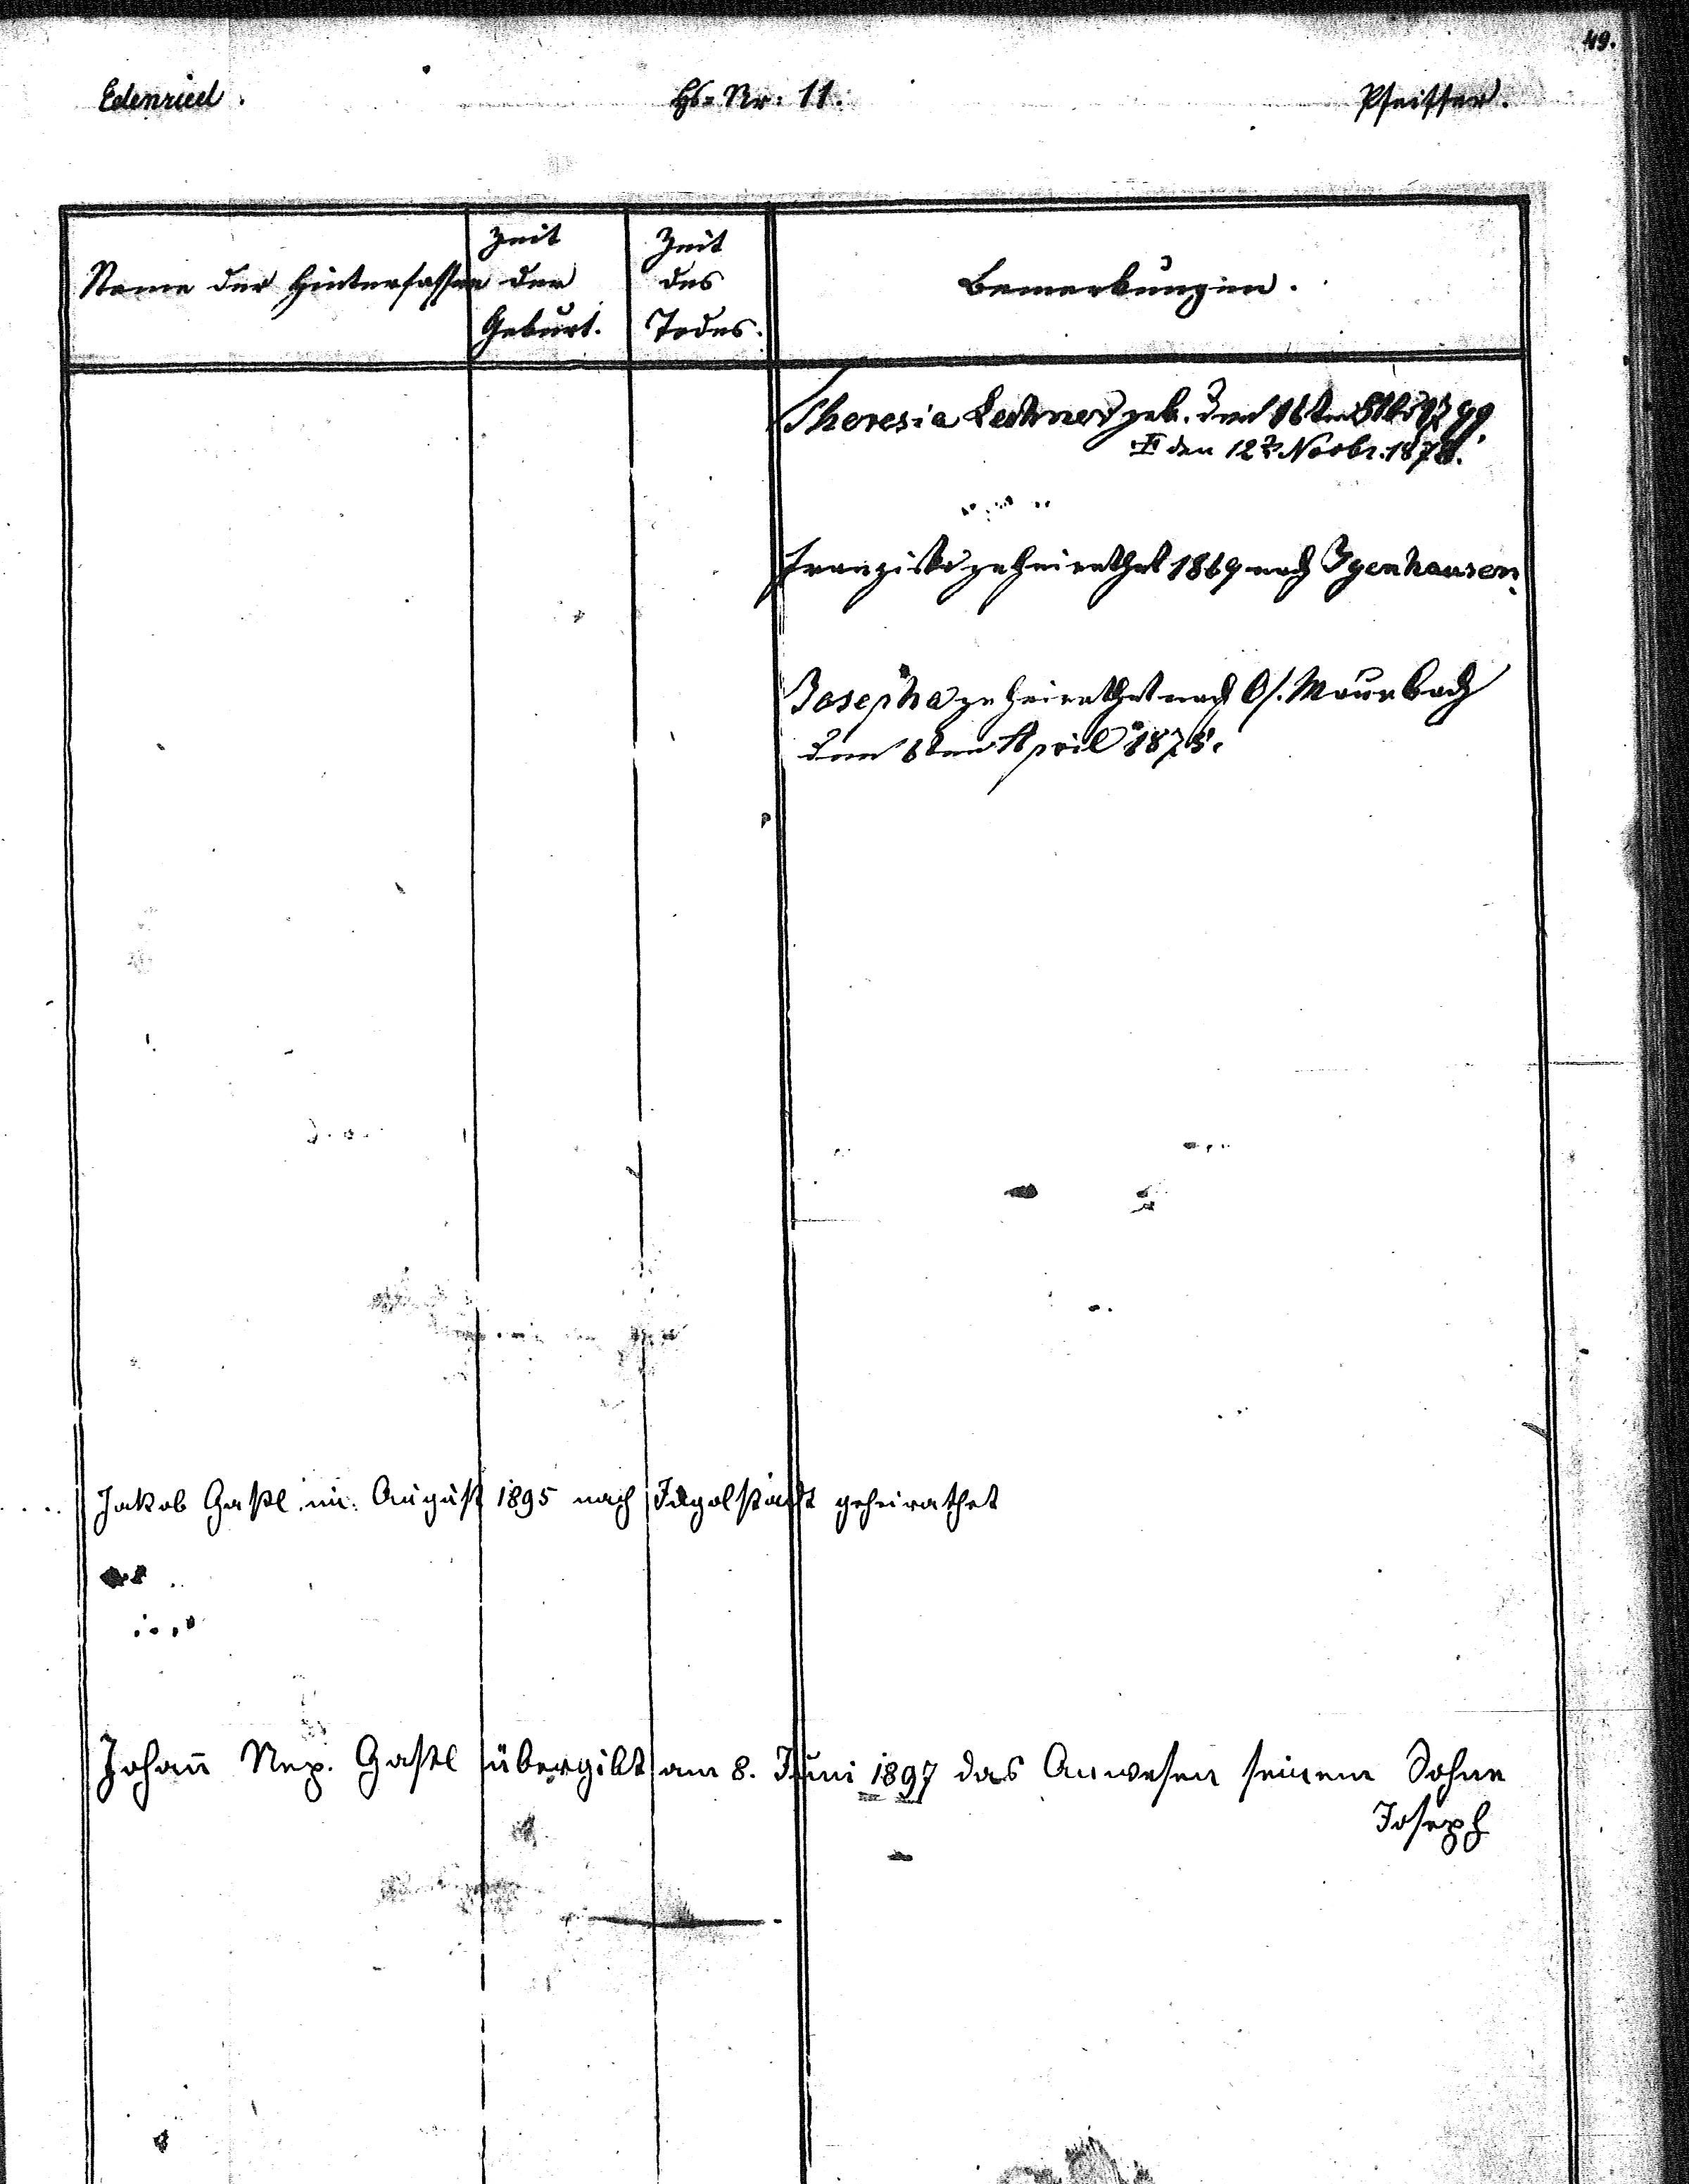 49.
Edenried. Hs=Nr: 11. Pfeiffer.
Name der Hintersassen
Zeit
der
Geburt.
Zeit
des
Todes.
Bemerkungen.
Theresia Lechner geb. den 16ten 8tbr 1799
den 12t Novbr. 1878.
Franziska geheirathet 1869 nach Igenhausen.
Josepha geheirathet nach O/. Maurbach
den 6ten April 1875.
Jakob Gastl im August 1895 nach Ingolstadt geheirathet
Johan̄ Nep. Gastl übergibt am 8. Juni 1897 das Anwesen seinem Sohne
Joseph